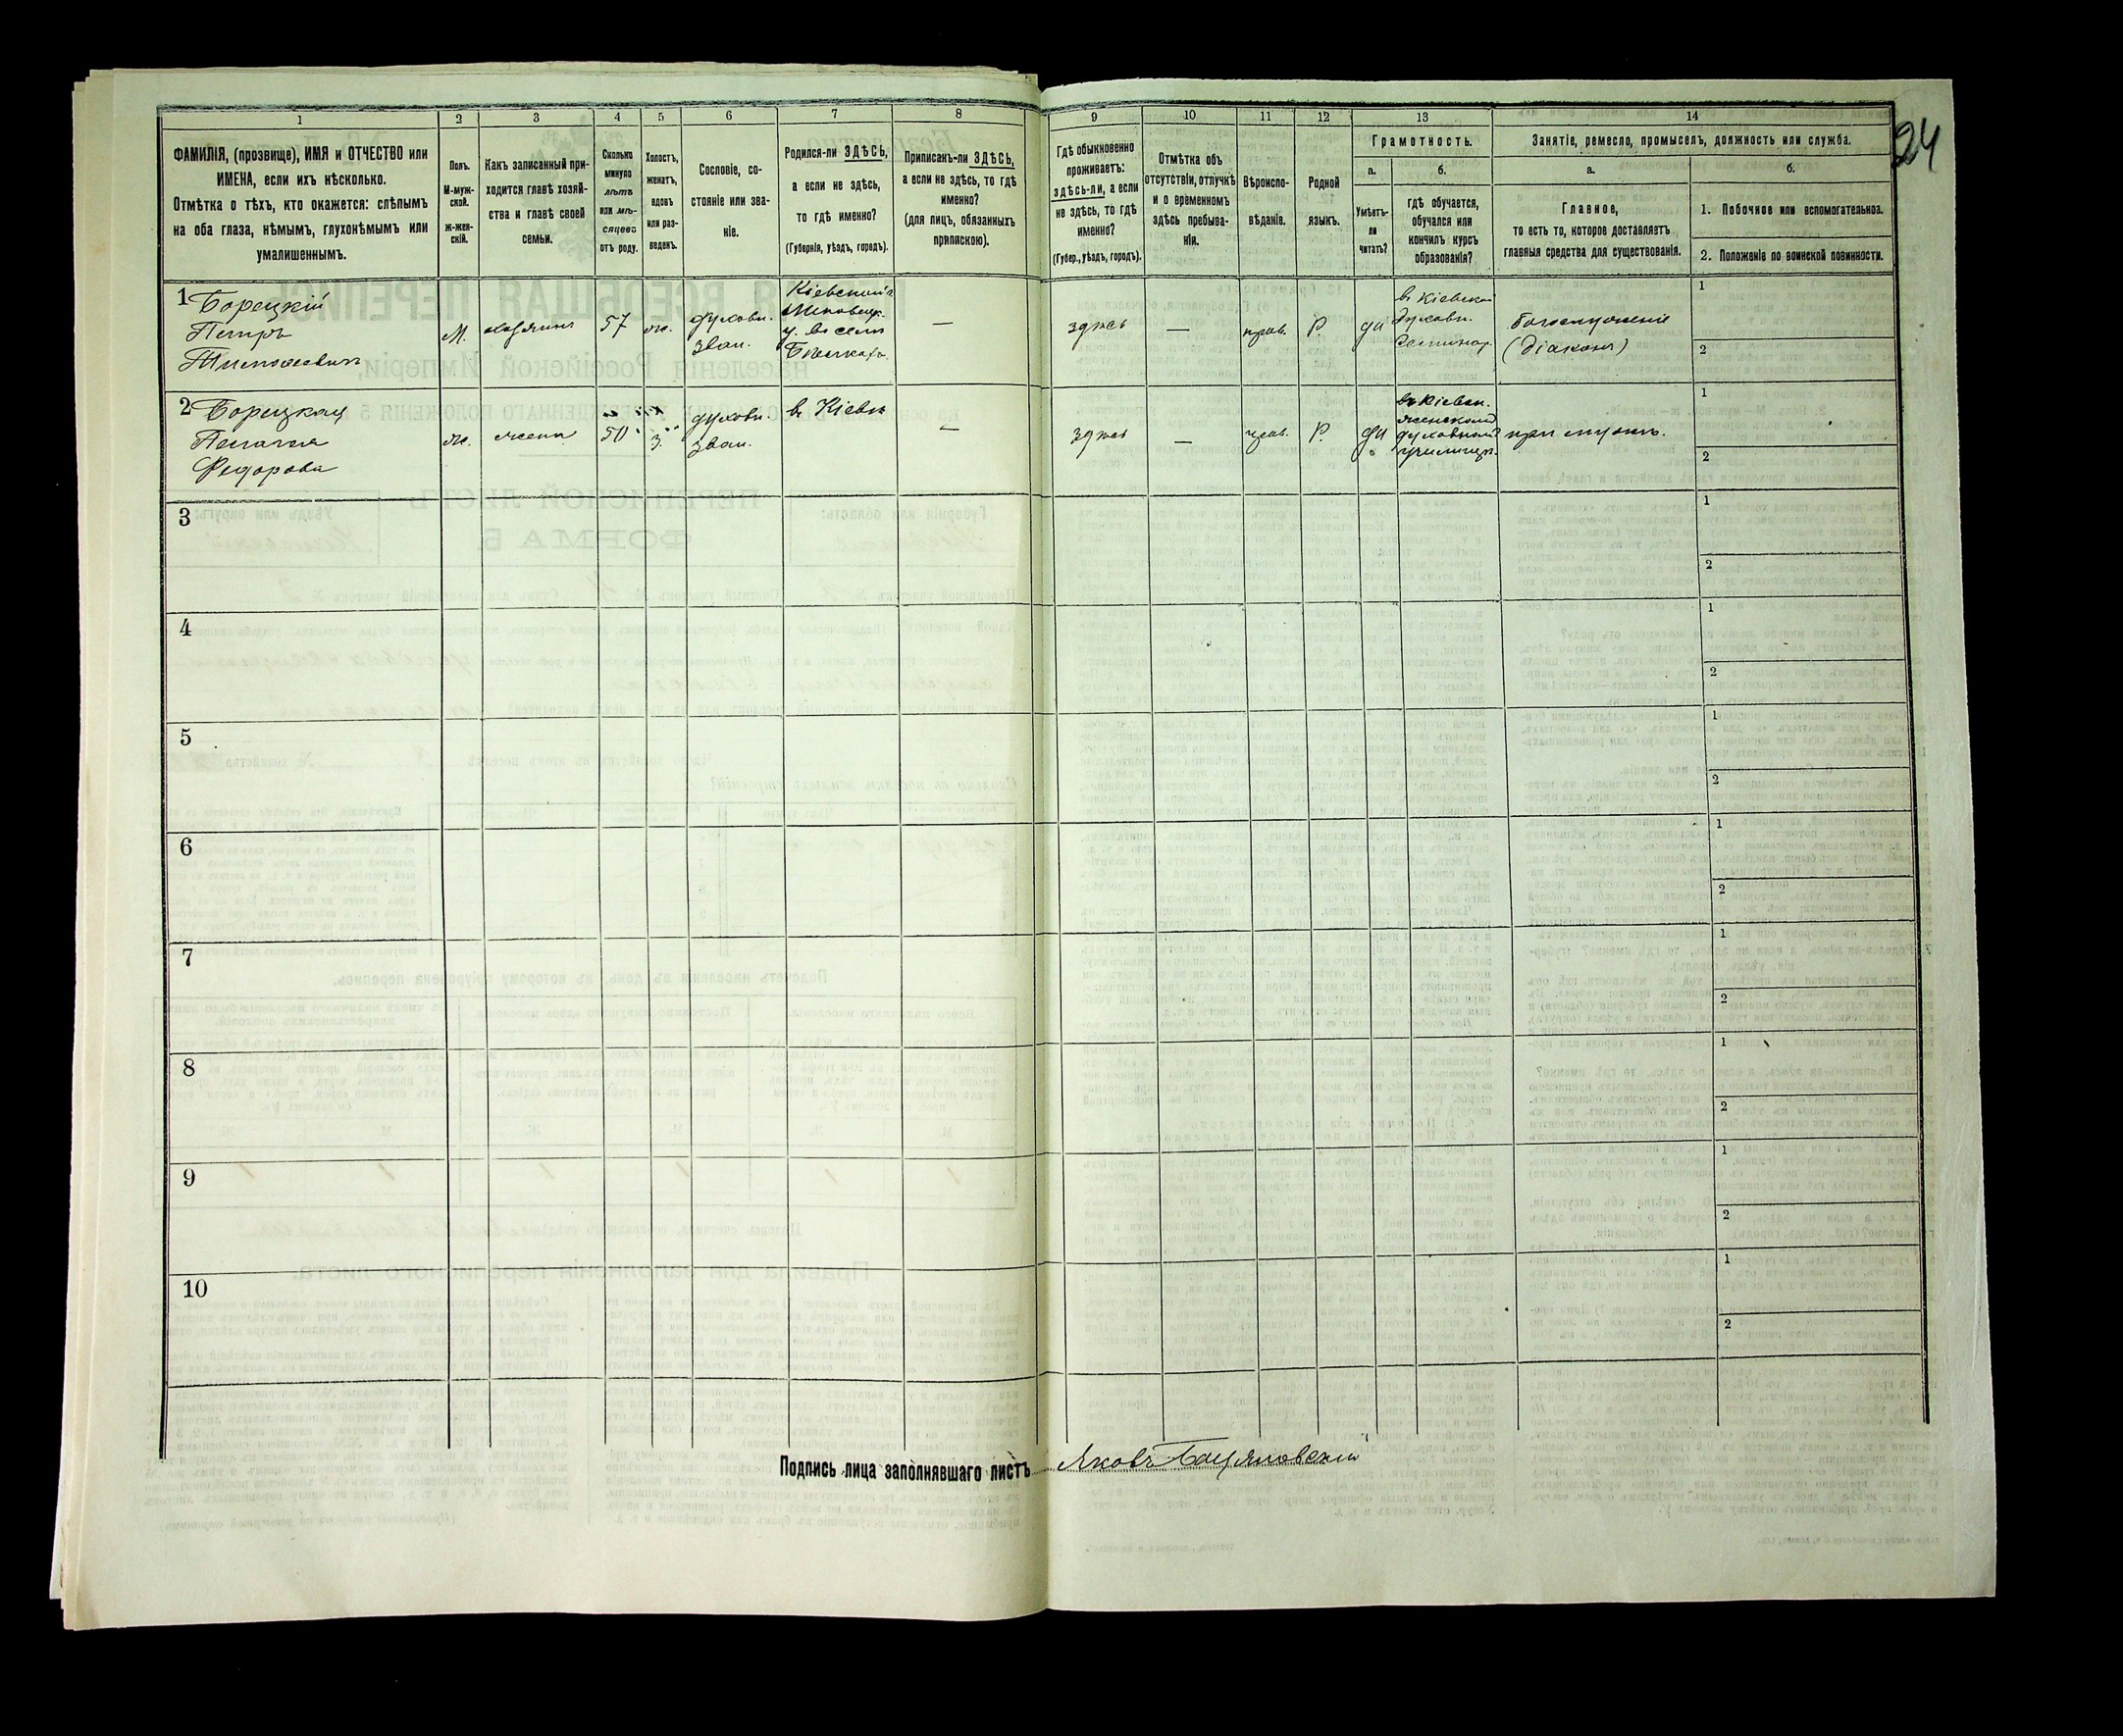 24
1
2
3
4
5
6
7
8
9
10
11
12
13
14
ФАМИЛІЯ, (прозвище), ИМЯ и ОТЧЕСТВО или
ИМЕНА, если ихъ нѣсколько.
Отмѣтка о тѣхъ, кто окажется: слѣпымъ
на оба глаза, нѣмымъ, глухонѣмымъ или
умалишеннымъ.
Полъ.
М-муж-
ской.
ж-жен-
скій.
Какъ записанный при-
ходится главѣ хозяй-
ства и главѣ своей
семьи.
Сколько
минуло
лѣтъ
или мѣ-
сяцевъ
отъ роду.
Холостъ,
женатъ,
вдовъ
или раз-
веденъ.
Сословіе, со-
стояніе или зва-
ніе.
Родился-ли ЗДѢСЬ,
а если не здѣсь,
то гдѣ именно?
(Губернія, уѣздъ, городъ).
Приписанъ-ли ЗДѢСЬ,
а если не здѣсь, то гдѣ
именно?
(для лицъ, обязанныхъ
припискою).
Гдѣ обыкновенно
проживаетъ:
здѣсь-ли, а если
не здѣсь, то гдѣ
именно?
(Губер., уѣздъ, городъ).
Отмѣтка объ
отсутствіи, отлучкѣ
и о временномъ
здѣсь пребыва-
ніи.
Вѣроиспо-
вѣданіе.
Родной
языкъ.
Грамотность.
а.
Умѣетъ-
ли
читать?
б.
гдѣ обучается,
обучался или
кончилъ курсъ
образованія?
Занятіе, ремесло, промыселъ, должность или служба.
а.
Главное,
то есть то, которое доставляетъ
главныя средства для существованія.
б.
1. Побочное или вспомогательное.
2. Положеніе по воинской повинности.
1
Борецкій
Петръ
Тимофеевичъ
М.
хозяинъ
57
ж.
духовн.
зван.
Кіевской
у. въ селѣ
—
здѣсь
—
прав.
Р.
да
въ Кіевской
духовн.
Семинар.
богослуженіе
(діаконъ)
1
2
2
Борецкая
Пелагея
Федорова
ж.
жена
50
з.
духовн.
зван.
въ Кіевѣ
—
здѣсь
—
прав.
Р.
да
въ Кіевск.
женскомъ
духовномъ
училищѣ.
при мужѣ.
1
2
3
1
2
4
1
2
5
1
2
6
1
2
7
1
2
8
1
2
9
1
2
10
1
2
Подпись лица заполнявшаго листъ
Яковъ